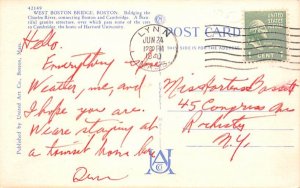 42149
WEST BOSTON BRIDGE, BOSTON. Bridging the
Charles River, connecting Boston and Cambridge. A Beau-
tiful granite structure, over which pass some of the cars
to Cambridge, the home of Harvard University.
Published by United Art Co., Boston, Mass.
POST CARD
LYNN
JUN 24
12 30 PM
1940
MASS.
UNITED STATES
1 CENT 1
Hello.
Everything fine
Weather, me, and
I hope you are.
We are staying at
a tourist home
Miss Hortense Bassett
45 Congress
Rochester
N.Y.